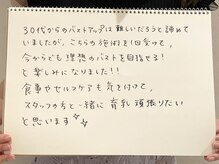 30代からのバストアップは難しいだろうと諦めて
いましたが、こちらの施術を1回受けて、
今からでも理想のバストを目指せる!
と楽しみになりました!!
食事やセルフケアも気を付けて、
スタッフの方と一緒に育乳頑張りたい
と思います